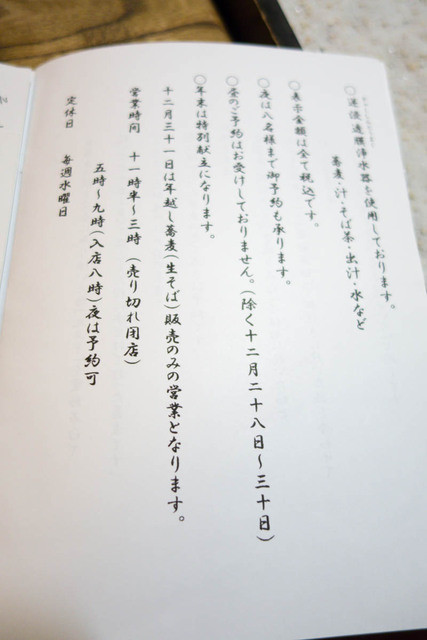 ○逆浸透膜浄水器を使用しております。
蕎麦・汁・そば茶・出汁・水など
○表示金額は全て税込です。
○夜は八名様まで御予約も承ります。
○昼のご予約はお受けしておりません。(除く十二月二十八日〜三十日)
○年末は特別献立になります。
十二月三十一日は年越し蕎麦(生そば)販売のみの営業となります。
営業時間 十一時半〜三時 (売り切れ閉店)
五時〜九時(入店八時)夜は予約可
定休日 毎週水曜日